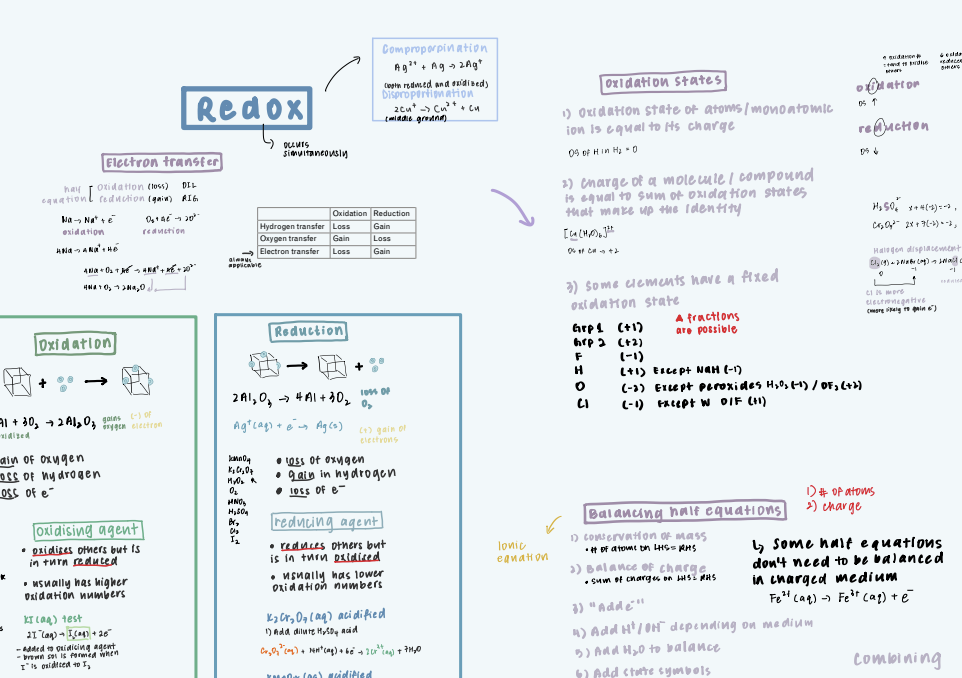 Redox
occurs
simultaneously
Comproporpination
Ag²⁺ + Ag → 2Ag⁺
(both reduced and oxidized)
Disproportionation
2Cu⁺ → Cu²⁺ + Cu
(middle ground)
Electron transfer
half
equation
Oxidation (loss) OIL
reduction (gain) RIG
Na → Na⁺ + e⁻
oxidation
O₂ + 4e⁻ → 2O²⁻
reduction
4Na → 4Na⁺ + 4e⁻
4Na + O₂ + 4e⁻ → 4Na⁺ + 4e⁻ + 2O²⁻
4Na + O₂ → 2Na₂O
always
applicable
Oxidation Reduction
Hydrogen transfer Loss Gain
Oxygen transfer Gain Loss
Electron transfer Loss Gain
Oxidation
+ →
Al + 3O₂ → 2Al₂O₃
gains
oxygen
(-) of
electron
oxidized
gain of oxygen
loss of hydrogen
loss of e⁻
Oxidising agent
• oxidises others but is
in turn reduced
• usually has higher
oxidation numbers
KI(aq) test
2I⁻(aq) → I₂(aq) + 2e⁻
- Added to oxidising agent
- brown sol is formed when
I⁻ is oxidised to I₂
Reduction
→ +
2Al₂O₃ → 4Al + 3O₂
loss of
O₂
Ag⁺(aq) + e⁻ → Ag(s)
(+) gain of
electrons
KMnO₄
K₂Cr₂O₇
H₂O₂
O₂
HNO₃
H₂SO₄
Br₂
Cl₂
I₂
• loss of oxygen
• gain in hydrogen
• loss of e⁻
reducing agent
• reduces others but
is in turn oxidised
• usually has lower
oxidation numbers
K₂Cr₂O₇(aq) acidified
1) Add dilute H₂SO₄ acid
Cr₂O₇²⁻(aq) + 14H⁺(aq) + 6e⁻ → 2Cr³⁺(aq) + 7H₂O
KMnO₄(aq) acidified
Oxidation states
1) Oxidation state of atoms/monoatomic
ion is equal to its charge
OS of H in H₂ = 0
2) Charge of a molecule / compound
is equal to sum of oxidation states
that make up the identity
[Cu(H₂O)₆]²⁺
OS of Cu → +2
3) Some elements have a fixed
oxidation state
Grp 1 (+1)
Grp 2 (+2)
F (-1)
H (+1) Except NaH (-1)
O (-2) Except peroxides H₂O₂ (-1) / OF₂ (+2)
Cl (-1) Except w O/F (+1)
▲ fractions
are possible
oxidation
OS ↑
reduction
OS ↓
Halogen displacement
Cl is more
electronegative
(more likely to gain e⁻)
Balancing half equations
1) # of atoms
2) charge
Ionic
equation
1) Conservation of mass
• # of atoms on LHS = RHS
2) Balance of charge
• sum of charges on LHS = RHS
3) "Add e⁻"
4) Add H⁺/OH⁻ depending on medium
5) Add H₂O to balance
6) Add state symbols
↳ Some half equations
don't need to be balanced
in charged medium
Fe²⁺(aq) → Fe³⁺(aq) + e⁻
combining